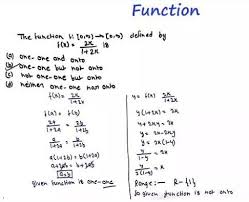 Function
The function f: [0,∞) → [0,∞) defined by
f(x) = 2x/(1+2x) is
(a) one-one and onto
(b) one-one but not onto
(c) not one-one but onto
(d) neither one-one nor onto
f(x) = 2x/(1+2x)
f(x) = f(y)
2a/(1+2a) = 2b/(1+2b)
a/(1+2a) = b/(1+2b)
a(1+2b) = b(1+2a)
a+2ab = b+2ab
a=b
given function is one-one
y = f(x) = 2x/(1+2x)
y(1+2x) = 2x
y+2xy = 2x
y = 2x-2xy
y = 2x(1-y)
y/(1-y) = 2x
y/2(1-y) = x
Range:- R-{1}
so given function is not onto